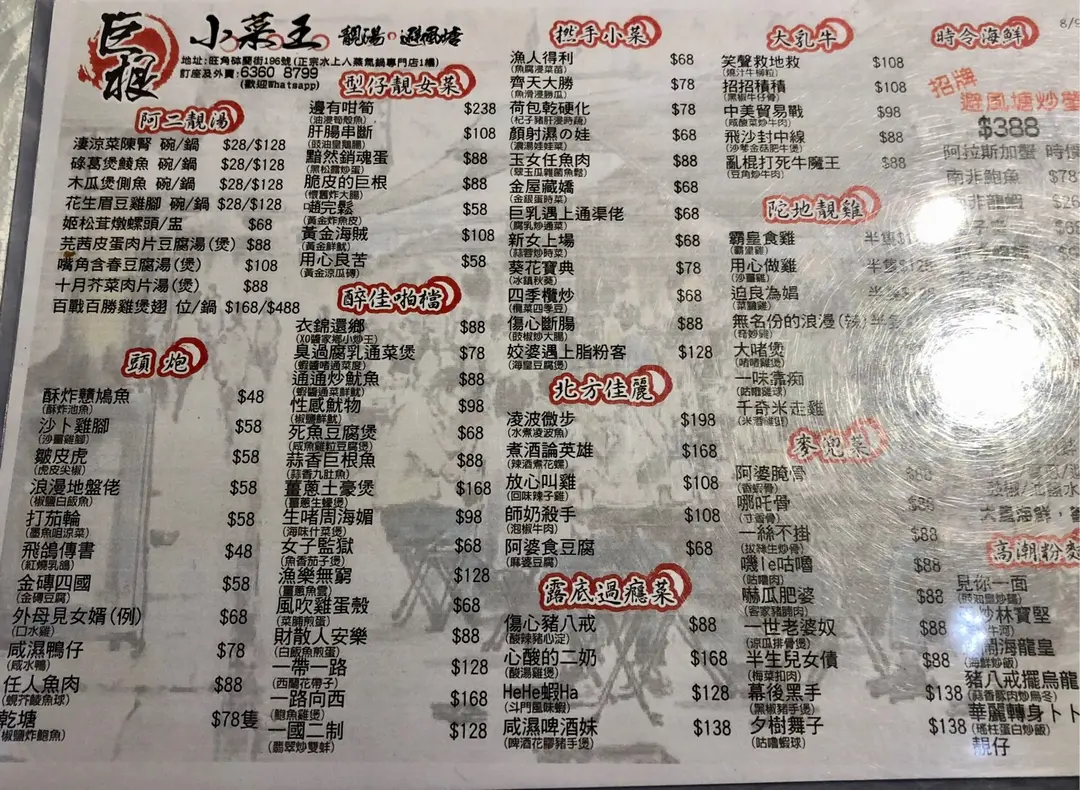 巨根
小菜王 靚湯·避風塘
地址:旺角砵蘭街196號(正宗水上人蒸氣鍋專門店1樓)
訂座及外賣:6360 8799
(歡迎Whatsapp)
阿二靚湯
淒涼菜陳腎 碗/鍋 $28/$128
碌葛煲鯪魚 碗/鍋 $28/$128
木瓜煲側魚 碗/鍋 $28/$128
花生眉豆雞腳 碗/鍋 $28/$128
姬松茸燉螺頭/盅 $68
芫茜皮蛋肉片豆腐湯(煲) $88
嘴角含春豆腐湯(煲) $108
十月芥菜肉片湯(煲) $88
百戰百勝雞煲翅 位/鍋 $168/$488
頭炮
酥炸戇鳩魚 $48
(酥炸池魚)
沙卜雞腳 $58
(沙薑雞腳)
皺皮虎 $58
(虎皮尖椒)
浪漫地盤佬 $58
(椒鹽白飯魚)
打茄輪 $58
(墨魚咀涼菜)
飛鴿傳書 $48
(紅燒乳鴿)
金磚四國 $58
(金磚豆腐)
外母見女婿(例) $68
(口水雞)
咸濕鴨仔 $78
(咸水鴨)
任人魚肉 $88
(蜆芥䱽魚球)
乾塘 $78隻
(椒鹽炸鮑魚)
型仔靚女菜
邊有咁筍 $238
(油浸筍殼魚)
肝腸串斷 $108
(豉油皇鵝腸)
黯然銷魂蛋 $88
(黑松露炒蛋)
脆皮的巨根 $88
(懷舊炸大腸)
啱完鬆 $58
(黃金炸魚皮)
黃金海賊 $108
(黃金鮮魷)
用心良苦 $58
(黃金涼瓜磚)
醉佳啪檔
衣錦還鄉 $88
(XO醬家鄉小炒王)
臭過腐乳通菜煲 $78
(蝦醬啫通菜煲)
通通炒魷魚 $88
(蝦醬通菜鮮魷)
性感魷物 $98
(椒鹽鮮魷)
死魚豆腐煲 $68
(咸魚雞粒豆腐煲)
蒜香巨根魚 $88
(蒜香九肚魚)
薑蔥土豪煲 $168
(薑蔥生蠔煲)
生啫周海媚 $98
(海味什菜煲)
女子監獄 $68
(魚香茄子煲)
漁樂無窮 $128
(薑蔥魚雲)
風吹雞蛋殼 $68
(菜脯煎蛋)
財散人安樂 $88
(白飯魚煎蛋)
一帶一路 $128
(西蘭花帶子)
一路向西 $168
(鮑魚雞煲)
一國二制 $128
(翡翠炒雙蚌)
撚手小菜
漁人得利 $68
(魚腐浸菜苗)
齊天大勝 $78
(魚滑浸勝瓜)
荷包乾硬化 $78
(杞子豬肝浸時蔬)
顏射濕の娃 $68
(濃湯娃娃菜)
玉女任魚肉 $88
(翠玉瓜雜菌魚鬆)
金屋藏嬌 $68
(金銀蛋時菜)
巨乳遇上通渠佬 $68
(腐乳炒通菜)
新女上場 $68
(蒜蓉炒時菜)
葵花寶典 $78
(冰鎮秋葵)
四季欖炒 $68
(欖菜四季豆)
傷心斷腸 $88
(豉椒炒大腸)
姣婆遇上脂粉客 $128
(海皇豆腐煲)
北方佳麗
凌波微步 $198
(水煮凌波魚)
煮酒論英雄 $168
(辣酒煮花螺)
放心叫雞 $108
(回味辣子雞)
師奶殺手 $108
(泡椒牛肉)
阿婆食豆腐 $68
(麻婆豆腐)
露底過癮菜
傷心豬八戒 $88
(酸辣豬心淀)
心酸的二奶 $168
(酸湯雞煲)
HeHe蝦Ha $128
(斗門風味蝦)
咸濕啤酒妹 $138
(啤酒花膠豬手煲)
大乳牛
笑聲救地救 $108
(燒汁牛柳粒)
招招積積 $108
(黑椒牛仔骨)
中美貿易戰 $98
(咸酸菜炒牛肉)
飛沙封中線 $88
(沙爹金菇肥牛煲)
亂棍打死牛魔王 $88
(豆角炒牛肉)
陀地靚雞
霸皇食雞 半隻
(霸皇雞)
用心做雞 半隻$128
(沙薑雞)
迫良為娼 半隻
(菜膽雞)
無名份的浪漫(辣)半隻
(奇妙雞)
大啫煲
(啫啫雞煲)
一味靠痴
(咕嚕雞球)
千奇米走雞
(米酒雞煲)
麥兜菜
阿婆腌骨 $88
(香蝦骨)
哪吒骨
(寸香骨)
一絲不掛 $88
(拔絲生炒骨)
嘰le咕嚕 $88
(咕嚕肉)
嚇瓜肥婆 $88
(客家豬腩肉)
一世老婆奴 $88
(涼瓜排骨煲)
半生兒女債 $88
(梅菜扣肉)
幕後黑手 $138
(黑椒豬手煲)
夕樹舞子 $138
(咕嚕蝦球)
時令海鮮
8/9
招牌
避風塘炒蟹
$388
阿拉斯加蟹 時價
南非鮑魚 $78
高潮粉麵
見你一面
(豉油皇炒麵)
炒林寶堅
海龍皇
(海鮮炒飯)
豬八戒擺烏龍
(蒜香豚肉炒烏冬)
華麗轉身卜卜
(瑤柱蛋白炒飯)
靚仔